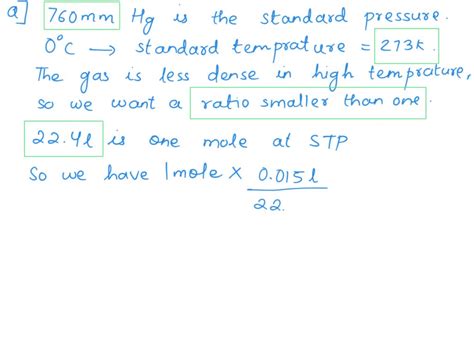 a] 760mm Hg is the standard pressure.
0°C → standard temprature = 273k.
The gas is less dense in high temprature,
so we want a ratio smaller than one.
22.4l is one mole at STP
So we have 1mole × 0.015l
22.